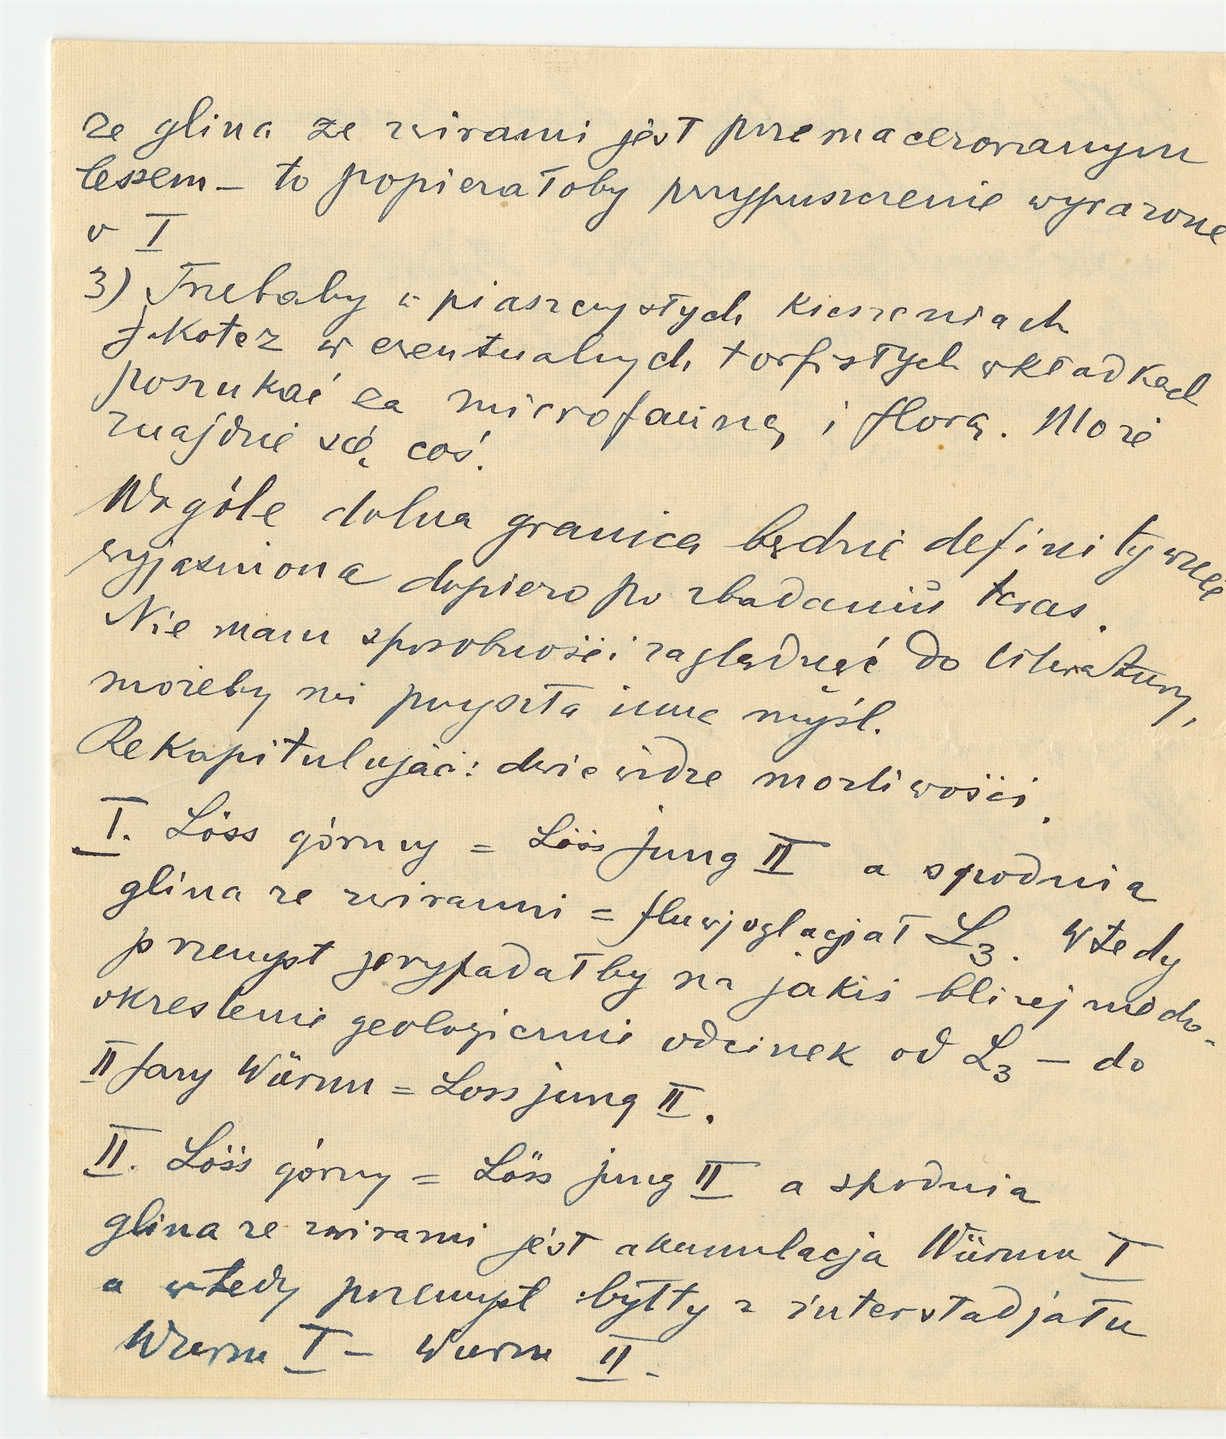 że glina ze żwirami jest przemacerowanym
lessem – to popierałoby przypuszczenie wyrażone
w I
3) Trzebaby w piaszczystych kieszeniach
jakoteż w ewentualnych torfistych wkładkach
poszukać za microfauną i florą. Może
znajdzie się coś.
Wogóle dolna granica będzie definitywnie
wyjaśniona dopiero po zbadaniu teras.
Nie mam sposobności zaglądnąć do literatury,
możeby mi przyszła inna myśl.
Rekapitulując: dwie widzę możliwości.
I. Löss górny = Löss jung II a spodnia
glina ze żwirami = fluwjoglacjał L3. Wtedy
przemysł przypadałby na jakiś bliżej niedo-
określenie geologicznie odcinek od L3 – do
II fazy Würmu = Loss jung II.
II. Löss górny = Löss jung II a spodnia
glina ze żwirami jest akumulacja Würmu I
a wtedy przemysł byłby z interstadjału
Wurm I – Wurm II.